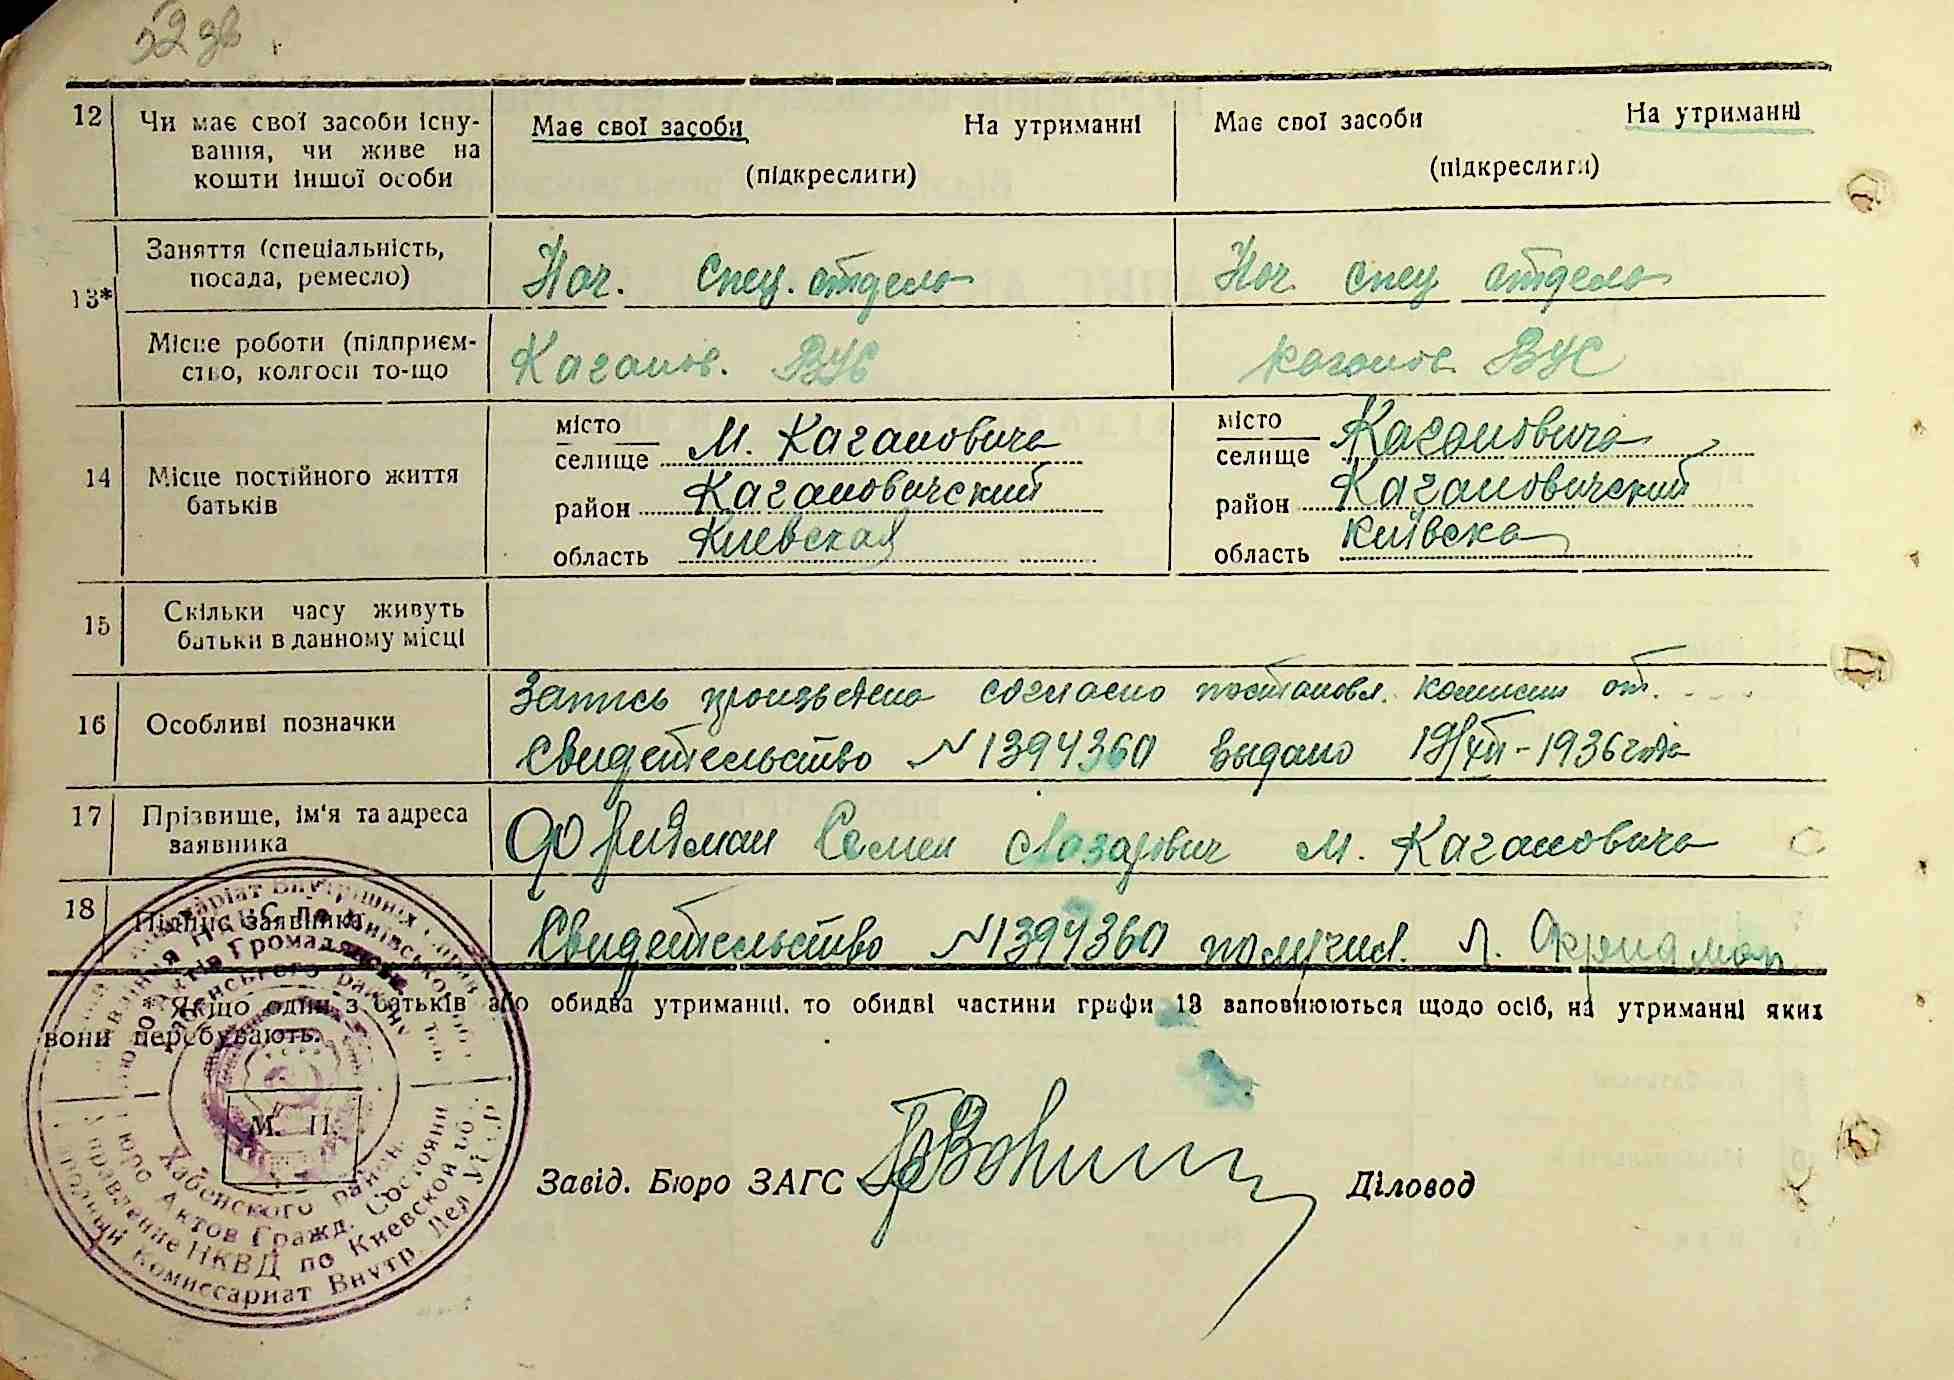 52 зв
12 Чи має свої засоби існу-
вання, чи живе на
кошти іншої особи
Має свої засоби На утриманні
(підкреслити)
Має свої засоби На утриманні
(підкреслити)
13*
Заняття (спеціальність,
посада, ремесло)
Нач. Спец. отдела
Нач. спец отдела
Місце роботи (підприєм-
ство, колгосп то-що
Каганов. ВУС
Каганов. ВУС
14 Місце постійного життя
батьків
місто
селище М. Кагановича
район Кагановичский
область Киевская
місто
селище Кагановича
район Кагановичский
область Київска
15 Скільки часу живуть
батьки в данному місці
16 Особливі позначки
Запись произведена согласно постановл. комиссии от. . . .
Свидетельство N 1394360 выдано 19/XII-1936 года
17 Прізвище, ім'я та адреса
заявника
Фридман Семен Лазарович м. Кагановича
18 Підпис заявника
Свидетельство N 1394360 получил. Фридман
* Якщо один з батьків або обидва утриманці, то обидві частини графи 13 заповнюються щодо осіб, на утриманні яких
вони перебувають.
М. П.
Завід. Бюро ЗАГС Діловод
Хабенского район.
Бюро Актов Гражд. Состояния
Управление НКВД по Киевской обл.
Народный Комиссариат Внутр. Дел УССР